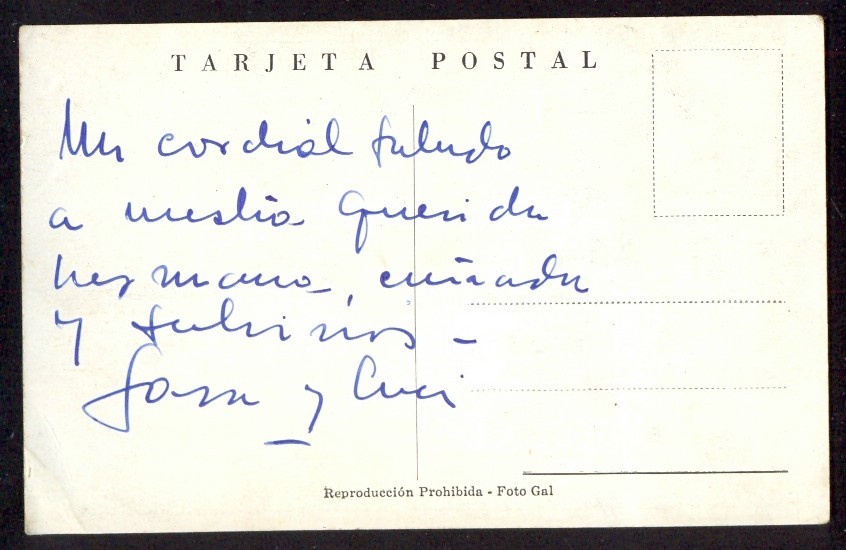 TARJETA POSTAL
Un cordial saludo
a nuestra querida
hermana, cuñada
y sobrinos -
y Cuci
Reproducción Prohibida - Foto Gal